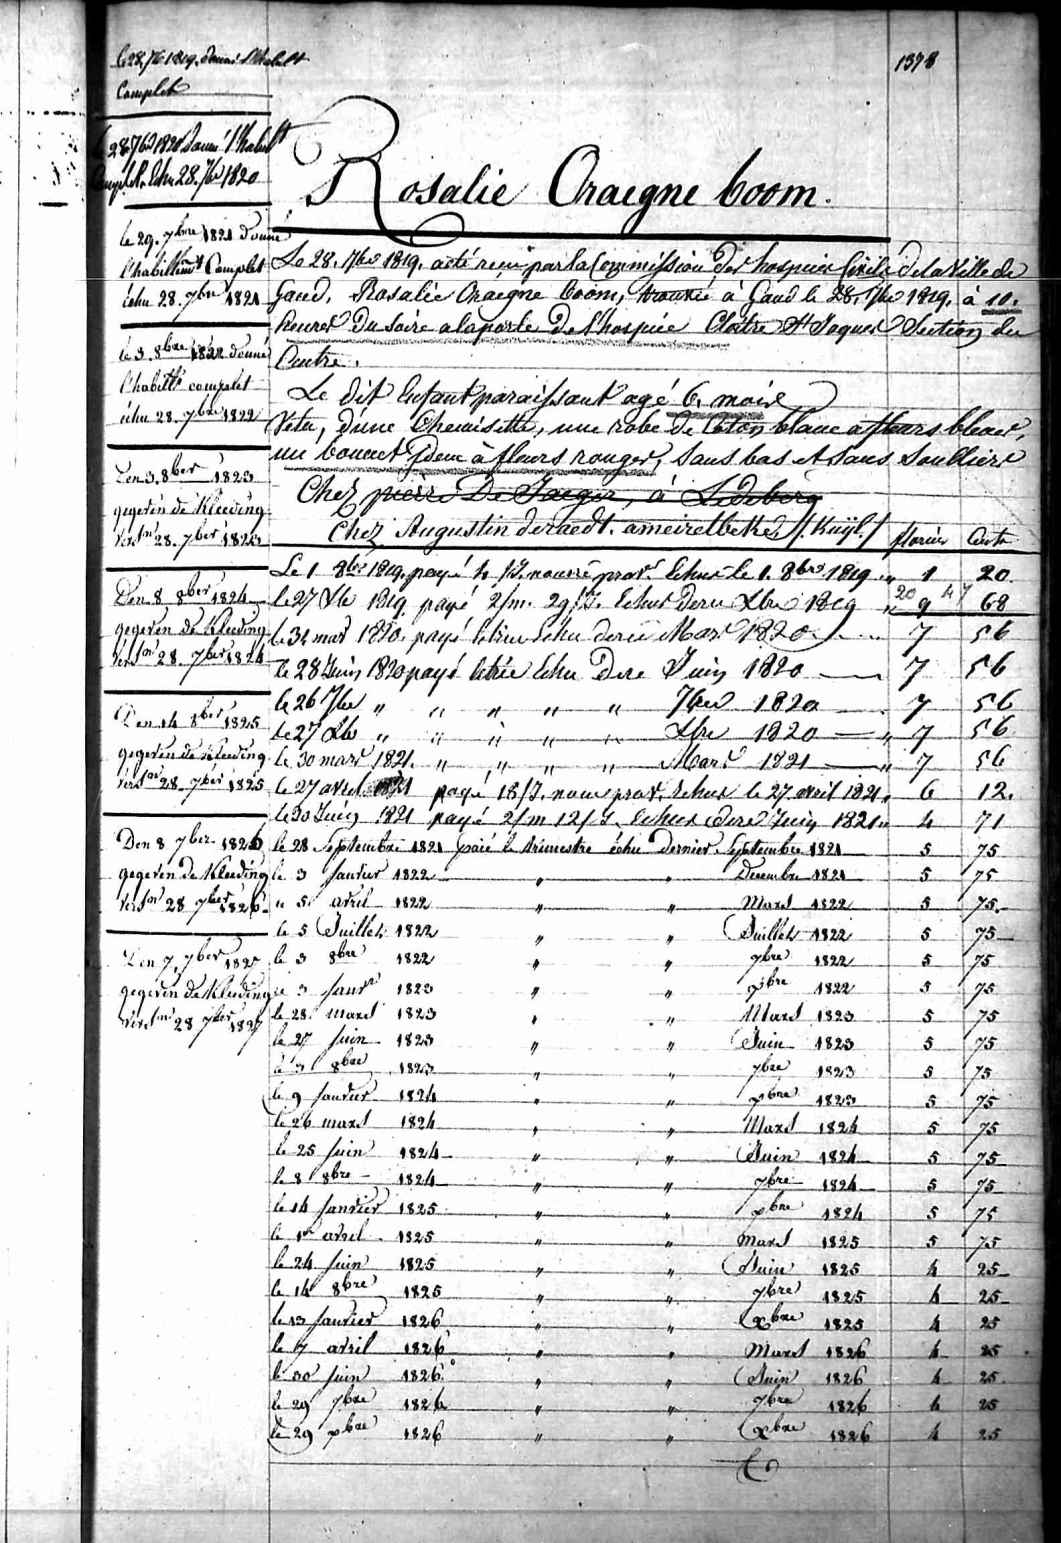 1378
Le 28. 7bre 1819. donné l'habill
Complet
Le 28 7bre 1820 Donné l'habill
Complet. Echu 28. 7bre 1820
le 29. 7bre 1821 donné
l'habillemt Complet
échu 28. 7bre 1821
le 3. 8bre 1822 donné
l'habillt complet
échu 28. 7bre 1822
Den 3. 8ber 1823
gegeven de Kleeding
versn 28. 7ber 1823
Den 8 8ber 1824
gegeven de Kleeding
versn 28. 7ber 1824
Den 14 8ber 1825
gegeven de Kleeding
versn 28. 7ber 1825
Den 8 7ber 1826
gegeven de Kleeding
versn 28 7ber 1826
Den 7, 7ber 1827
gegeven de Kleeding
versn 28 7ber 1827
Rosalie Oraegne boom.
Le 28. 7bre 1819. a été reçu par la Commission des hospices Civils de la Ville de
Gand, Rosalie Oraegne boom, trouvée à Gand le 28. 7bre 1819. à 10.
heures Du Soire a la porte de l'hospice Cloitre St Jaques Section du
Centre.
Le dit Enfant paraissant agé 6. mois
Vetu, d'une Chemisette, une robe de Coton blanc à fleurs bleues,
un bonnet d'Idem à fleurs rouges, Sans bas et Sans Soulliers
Chez pierre De Jaeger, à Ledeberg
Chez Augustin deraedt. a meirelbeke /. Kuyl /
florins Cents
Le 1 8bre 1819. payé 4/J. nourri prov. Echus le 1. 8bre 1819 " 1 20
le 27 Xbre 1819 payé 2/m. 29/J. Echus dern Xbre 1819 " 9 68
20 47
le 31 mars 1820. payé letrim Echu derne Mars 1820 7 56
le 28 Juin 1820 payé letrie Echu Dere Juin 1820 7 56
le 26 7bre " " " " " 7bre 1820 7 56
le 27 Xbre " " " " " Xbre 1820 " 7 56
le 30 mars 1821. " " " " Mars 1821 " 7 56
le 27 avril 1821 payé 18/J. nour prov. Echus le 27 avril 1821 " 6 12.
le 30 Juin 1821 payé 2/m 12/J. Echus dere Juin 1821 " 4 71
le 28 Septembre 1821 paié le trimestre échu dernier Septembre 1821 5 75
le 3 Janvier 1822 " " Decembre 1821 5 75
le 5 avril 1822 " " Mars 1822 5 75
le 5 Juillet 1822 " " Juillet 1822 5 75
le 3 8bre 1822 " " 7bre 1822 5 75
le 3 Janvr 1823 " " xbre 1822 5 75
le 28 mars 1823 " " Mars 1823 5 75
le 27 Juin 1823 " " Juin 1823 5 75
le 3 8bre 1823 " " 7bre 1823 5 75
le 9 Janvier 1824 " " xbre 1823 5 75
le 26 mars 1824 " " Mars 1824 5 75
le 25 Juin 1824 " " Juin 1824 5 75
le 8 8bre 1824 " " 7bre 1824 5 75
le 14 Janvier 1825 " " xbre 1824 5 75
le 1r avril 1825 " " Mars 1825 5 75
le 24 Juin 1825 " " Juin 1825 4 25
le 14 8bre 1825 " " 7bre 1825 4 25
le 13 Janvier 1826 " " xbre 1825 4 25
le 7 avril 1826 " " Mars 1826 4 25
le 30 Juin 1826 " " Juin 1826 4 25
le 29 7bre 1826 " " 7bre 1826 4 25
le 29 xbre 1826 " " xbre 1826 4 25